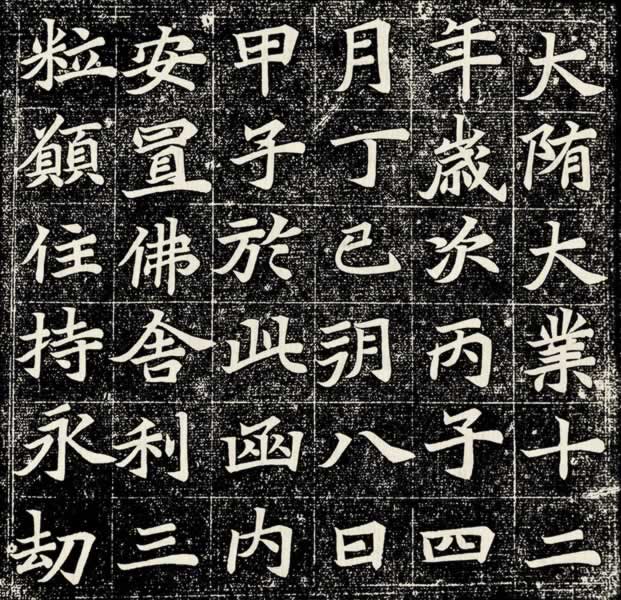 大隋大業十二
年歳次丙子四
月丁巳朔八日
甲子於此函内
安置佛舎利三
粒願住持永劫